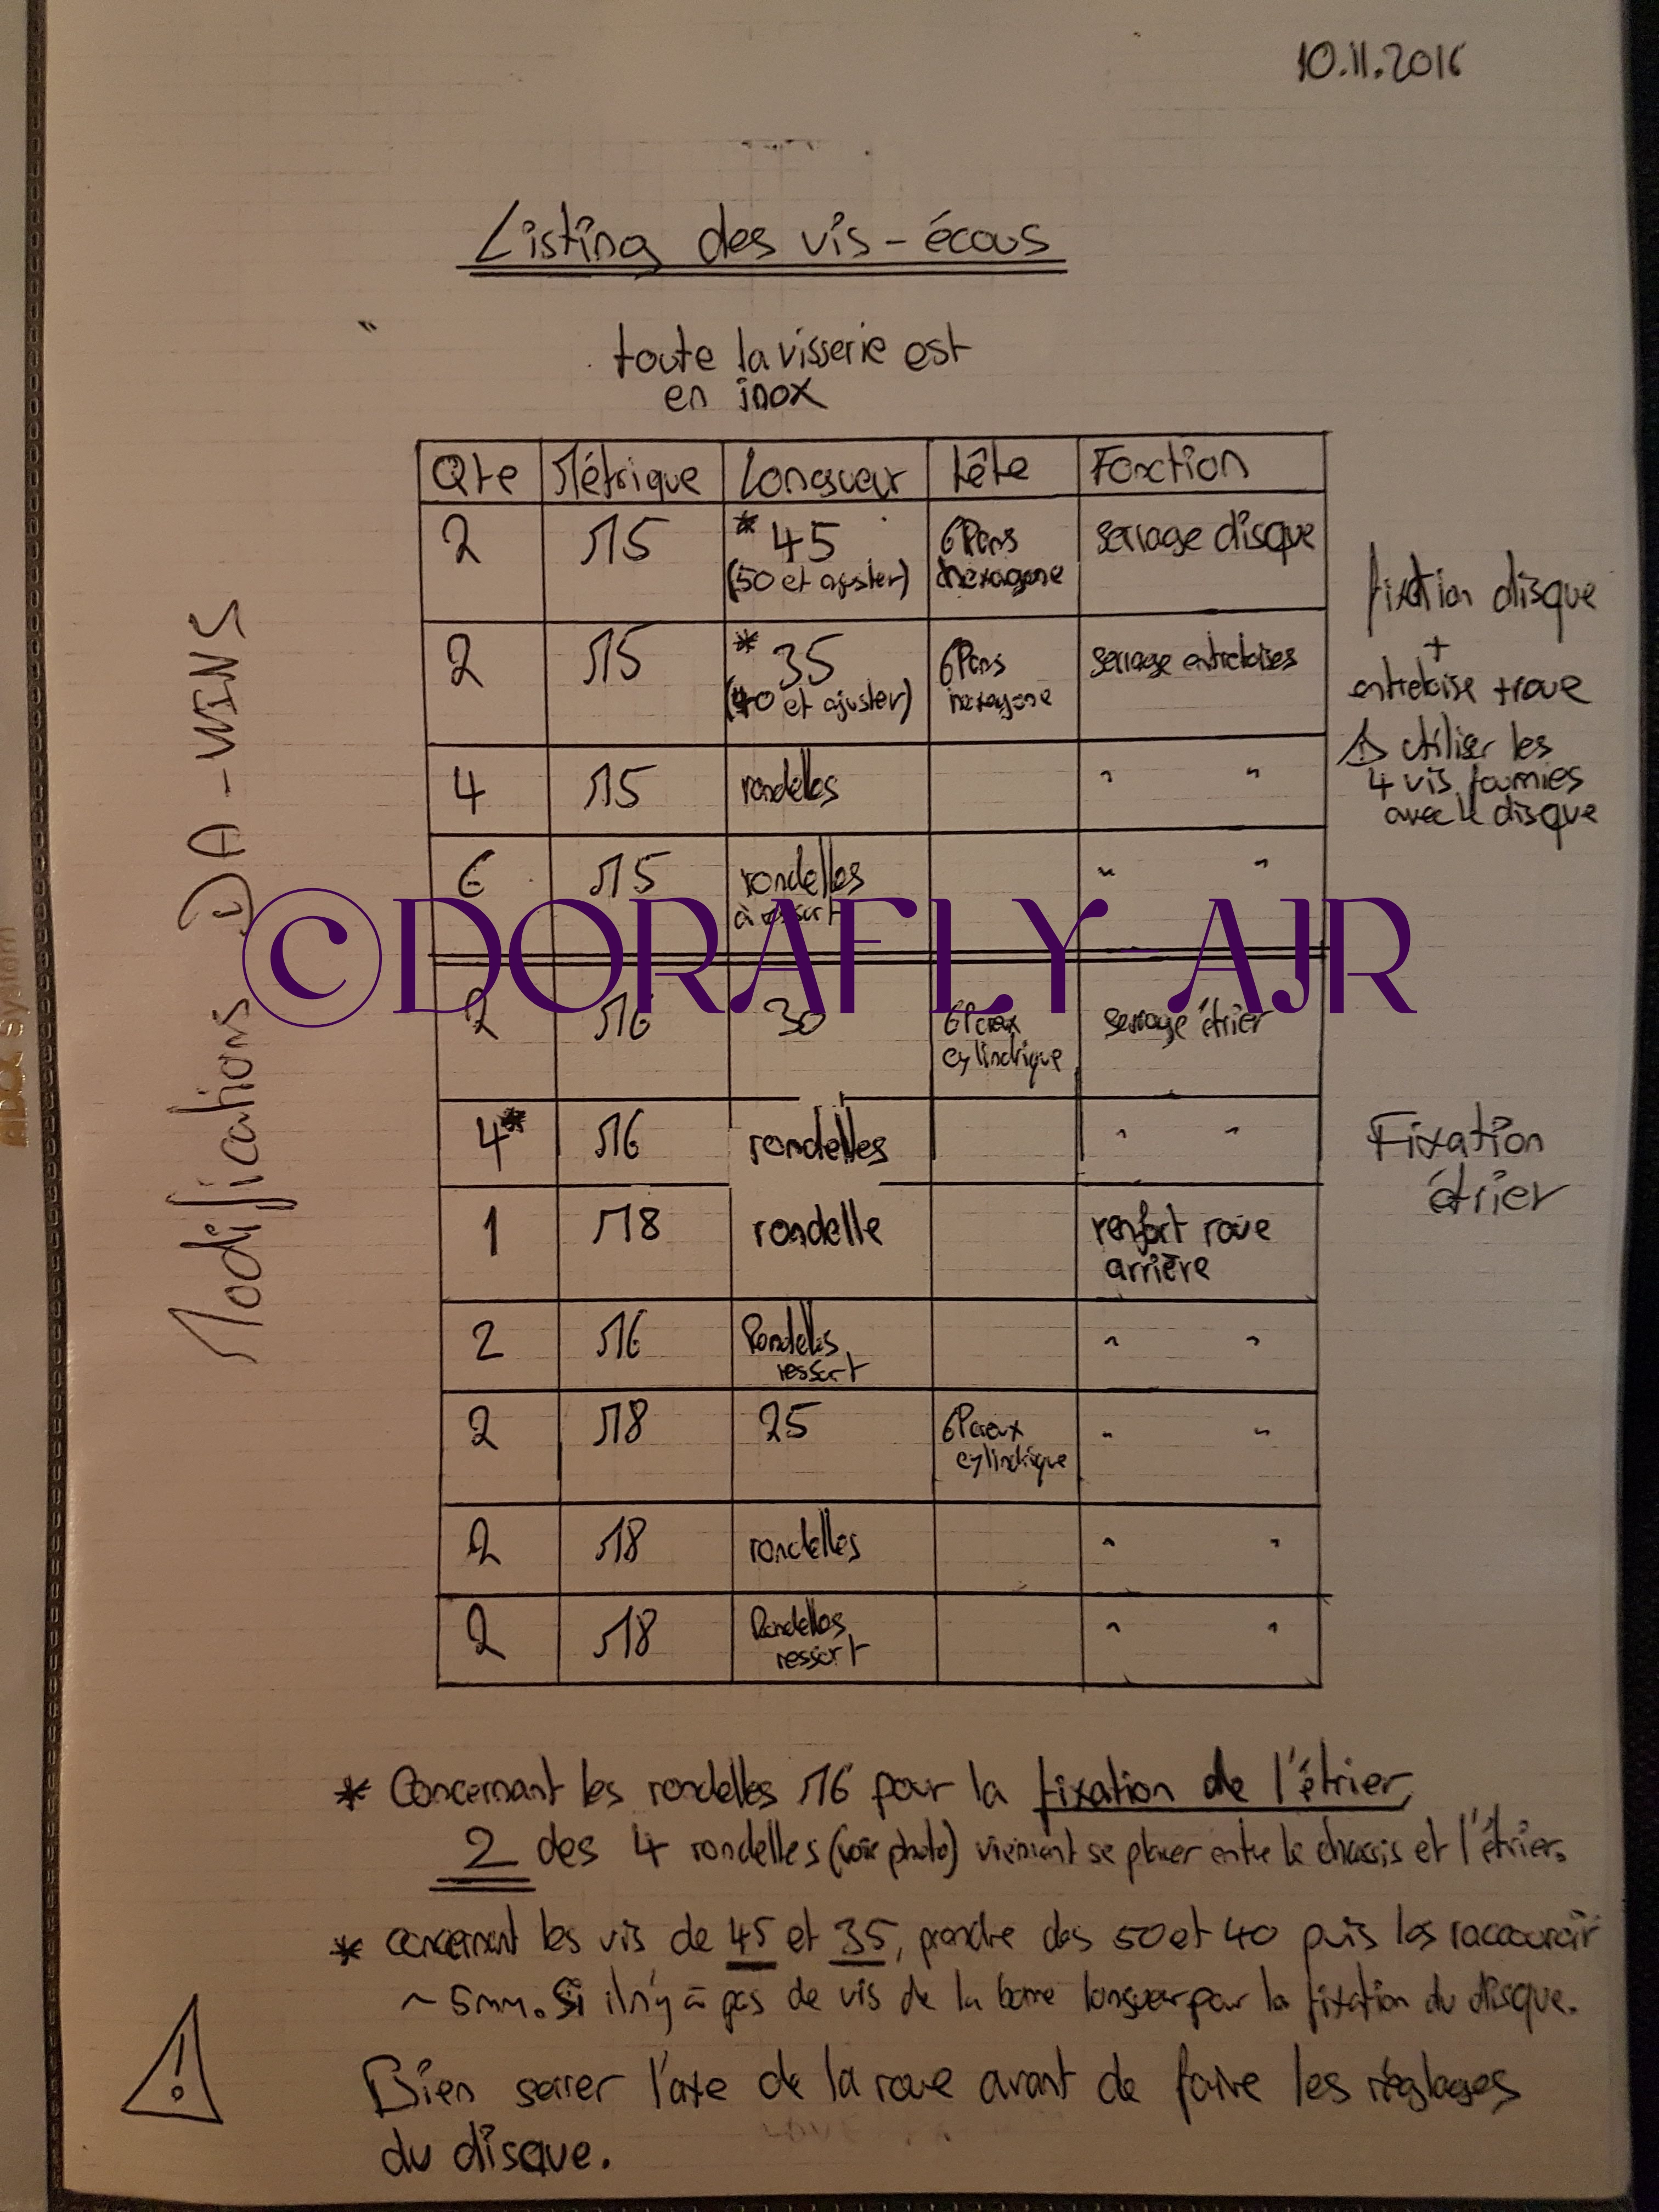 10.11.2016
Listing des vis-écous
toute la visserie est
en inox
Qte Métrique Longueur tête Fonction
2 M5 * 45 6Pans serrage disque
(50 et ajuster) hexagone
2 M5 * 35 6Pans serrage entretoises
(40 et ajuster) hexagone
4 M5 rondelles " "
6 M5 rondelles " "
à ressort
2 M6 30 6Pcreux serrage étrier
cylindrique
4* M6 rondelles " "
1 M8 rondelle renfort roue
arrière
2 M6 Rondelles " "
ressort
2 M8 25 6Pcreux " "
cylindrique
2 M8 rondelles " "
2 M8 Rondelles " "
ressort
fixation disque
+
entretoise + roue
⚠ utiliser les
4 vis fournies
avec le disque
Fixation
étrier
Modifications DA-WINS
©DORAFLY-AJR
* Concernant les rondelles M6 pour la fixation de l'étrier,
2 des 4 rondelles (voir photo) viennent se placer entre le chassis et l'étrier.
* concernant les vis de 45 et 35, prendre des 50 et 40 puis les raccourcir
~ 5mm. Si il n'y à pas de vis de la bonne longueur pour la fixation du disque.
⚠ Bien serrer l'axe de la roue avant de faire les réglages
du disque.